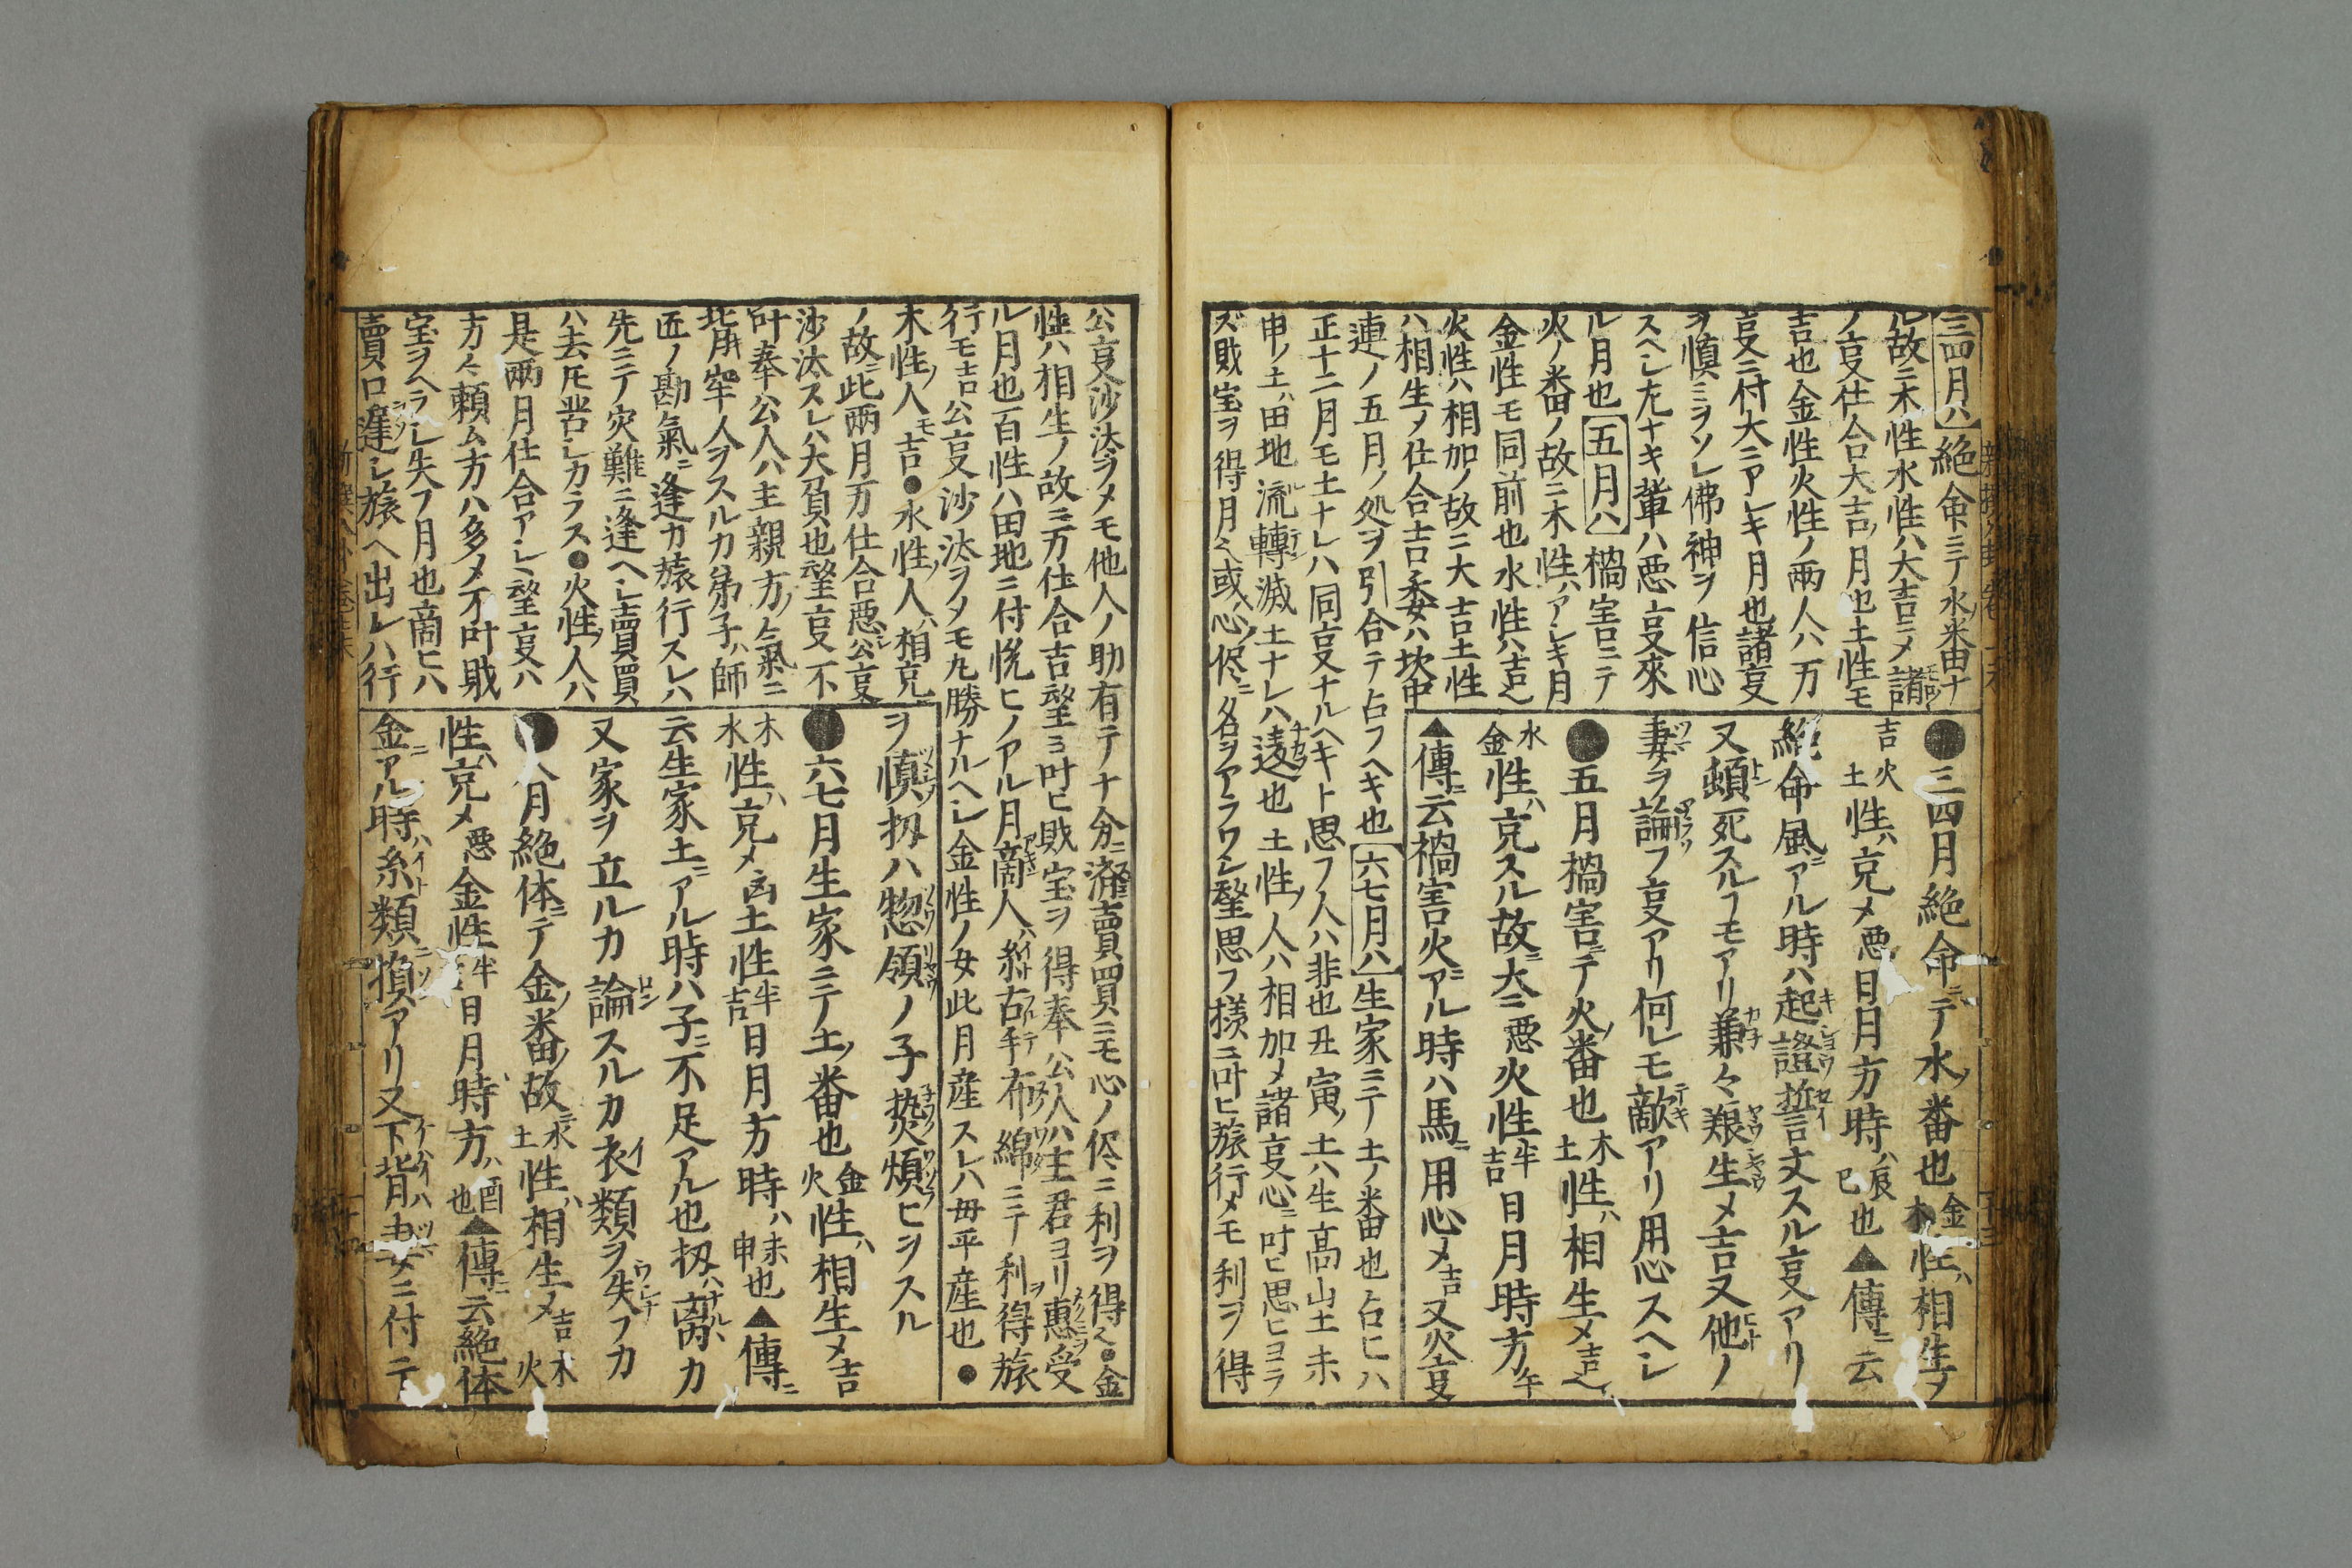 三四月ハ絶命ニテ水ノ番由ナ
ル故ニ木性水性ハ大吉ニメ諸
ノ㕝仕合大吉ノ月也土性モ
吉也金性火性ノ兩人ハ万
㕝ニ付大ニアレキ月也諸㕝
ヲ慎ミヲソレ佛神ヲ信心
スヘレ左ナキ輩ハ悪㕝來
ル月也五月ハ禍害ニテ
火ノ番ノ故ニ木性ハアレキ月
金性モ同前也水性ハ吉也
火性ハ相加ノ故ニ大吉土性
ハ相生メ仕合吉
連ノ五月ノ処ヲ引合テ占フヘキ也六七月ハ生家ニテ土ノ番也占ヒハ
正十二月モ土ナレハ同㕝ナルヘキト思フ人ハ非也丑寅ノ土ハ生髙山土未
申ノ土ハ田地流轉滅土ナレハ遠也土性ノ人ハ相加メ諸㕝心ニ叶ヒ思ヒヨラ
ズ財宝ヲ得月也或ハ心ノ侭ニ名ヲアラワレ㙛思フ様ニ叶ヒ旅行メモ利ヲ得
●三四月絶命ニテ水ノ番也金木性ハ相生ノ
吉火土性ハ克メ悪日月方時ハ辰巳也▲傳ニ云
絶命風ニアル時ハ起證誓言文スル㕝アリ
又頓死スルヿモアリ兼々艱生メ吉又他ノ
妻ヲ論フ㕝アリ何レモ敵アリ用心スヘレ
●五月禍害ニテ火ノ番也木土性ハ相生メ吉也
水金性ハ克スル故ニ大ニ悪火性半吉日月時方午
▲傳ニ云禍害火ニアル時ハ馬ニ用心メ吉又火㕝
公㕝沙汰ヲメモ他人ノ助有テ十分ニ賣買ニモ心ノ侭ニ利ヲ得也●金
性ハ相生ノ故ニ万仕合吉望ミ叶ヒ財宝ヲ得奉公人ハ主君ヨリ惠受
ル月也百性ハ田地ニ付悦ヒノアル月啇人ハ糸古手布綿ニテ利ヲ得旅
行モ吉公㕝沙汰ヲメモ九勝ナルヘレ金性ノ女此月産スレハ毋平産也●
木性ノ人モ吉●水性ノ人ハ相克
ノ故ニ此兩月万仕合悪レ公㕝
沙汰スレハ大負也望㕝不
叶奉公人ハ主親方ノ氣ニ
背牢人ヲスルカ弟子ハ師
匠ノ勘氣ニ逢カ旅行スレハ
先ニテ災難ニ逢ヘレ賣買
ハ去𪜈苦レカラス●火性ノ人ハ
是兩月仕合アレヽ望㕝ハ
方々頼ム方ハ多メ不叶財
宝ヲヘラレ失フ月也啇ヒハ
賣口違レ旅ヘ出レハ行
ヲ慎扨ハ惣領ノ子煩ヒヲスル
●六七月生家ニテ土ノ番也金火性ハ相生メ吉
木水性ハ克メ凶土性半吉日月方時ハ未申也▲傳ニ
云生家土ニアル時ハ子ニ不足アル也扨ハ离ハカ
又家ヲ立ルカ論スルカ衣類ヲ失フカ
●八月絶体ニテ金ノ番ノ故ニ水土性ハ相生メ吉木火
性ハ克メ悪金性半日月時方ハ酉也▲傳ニ云絶体
金ニアル時ハ糸類損アリ又下背妻ニ付テ